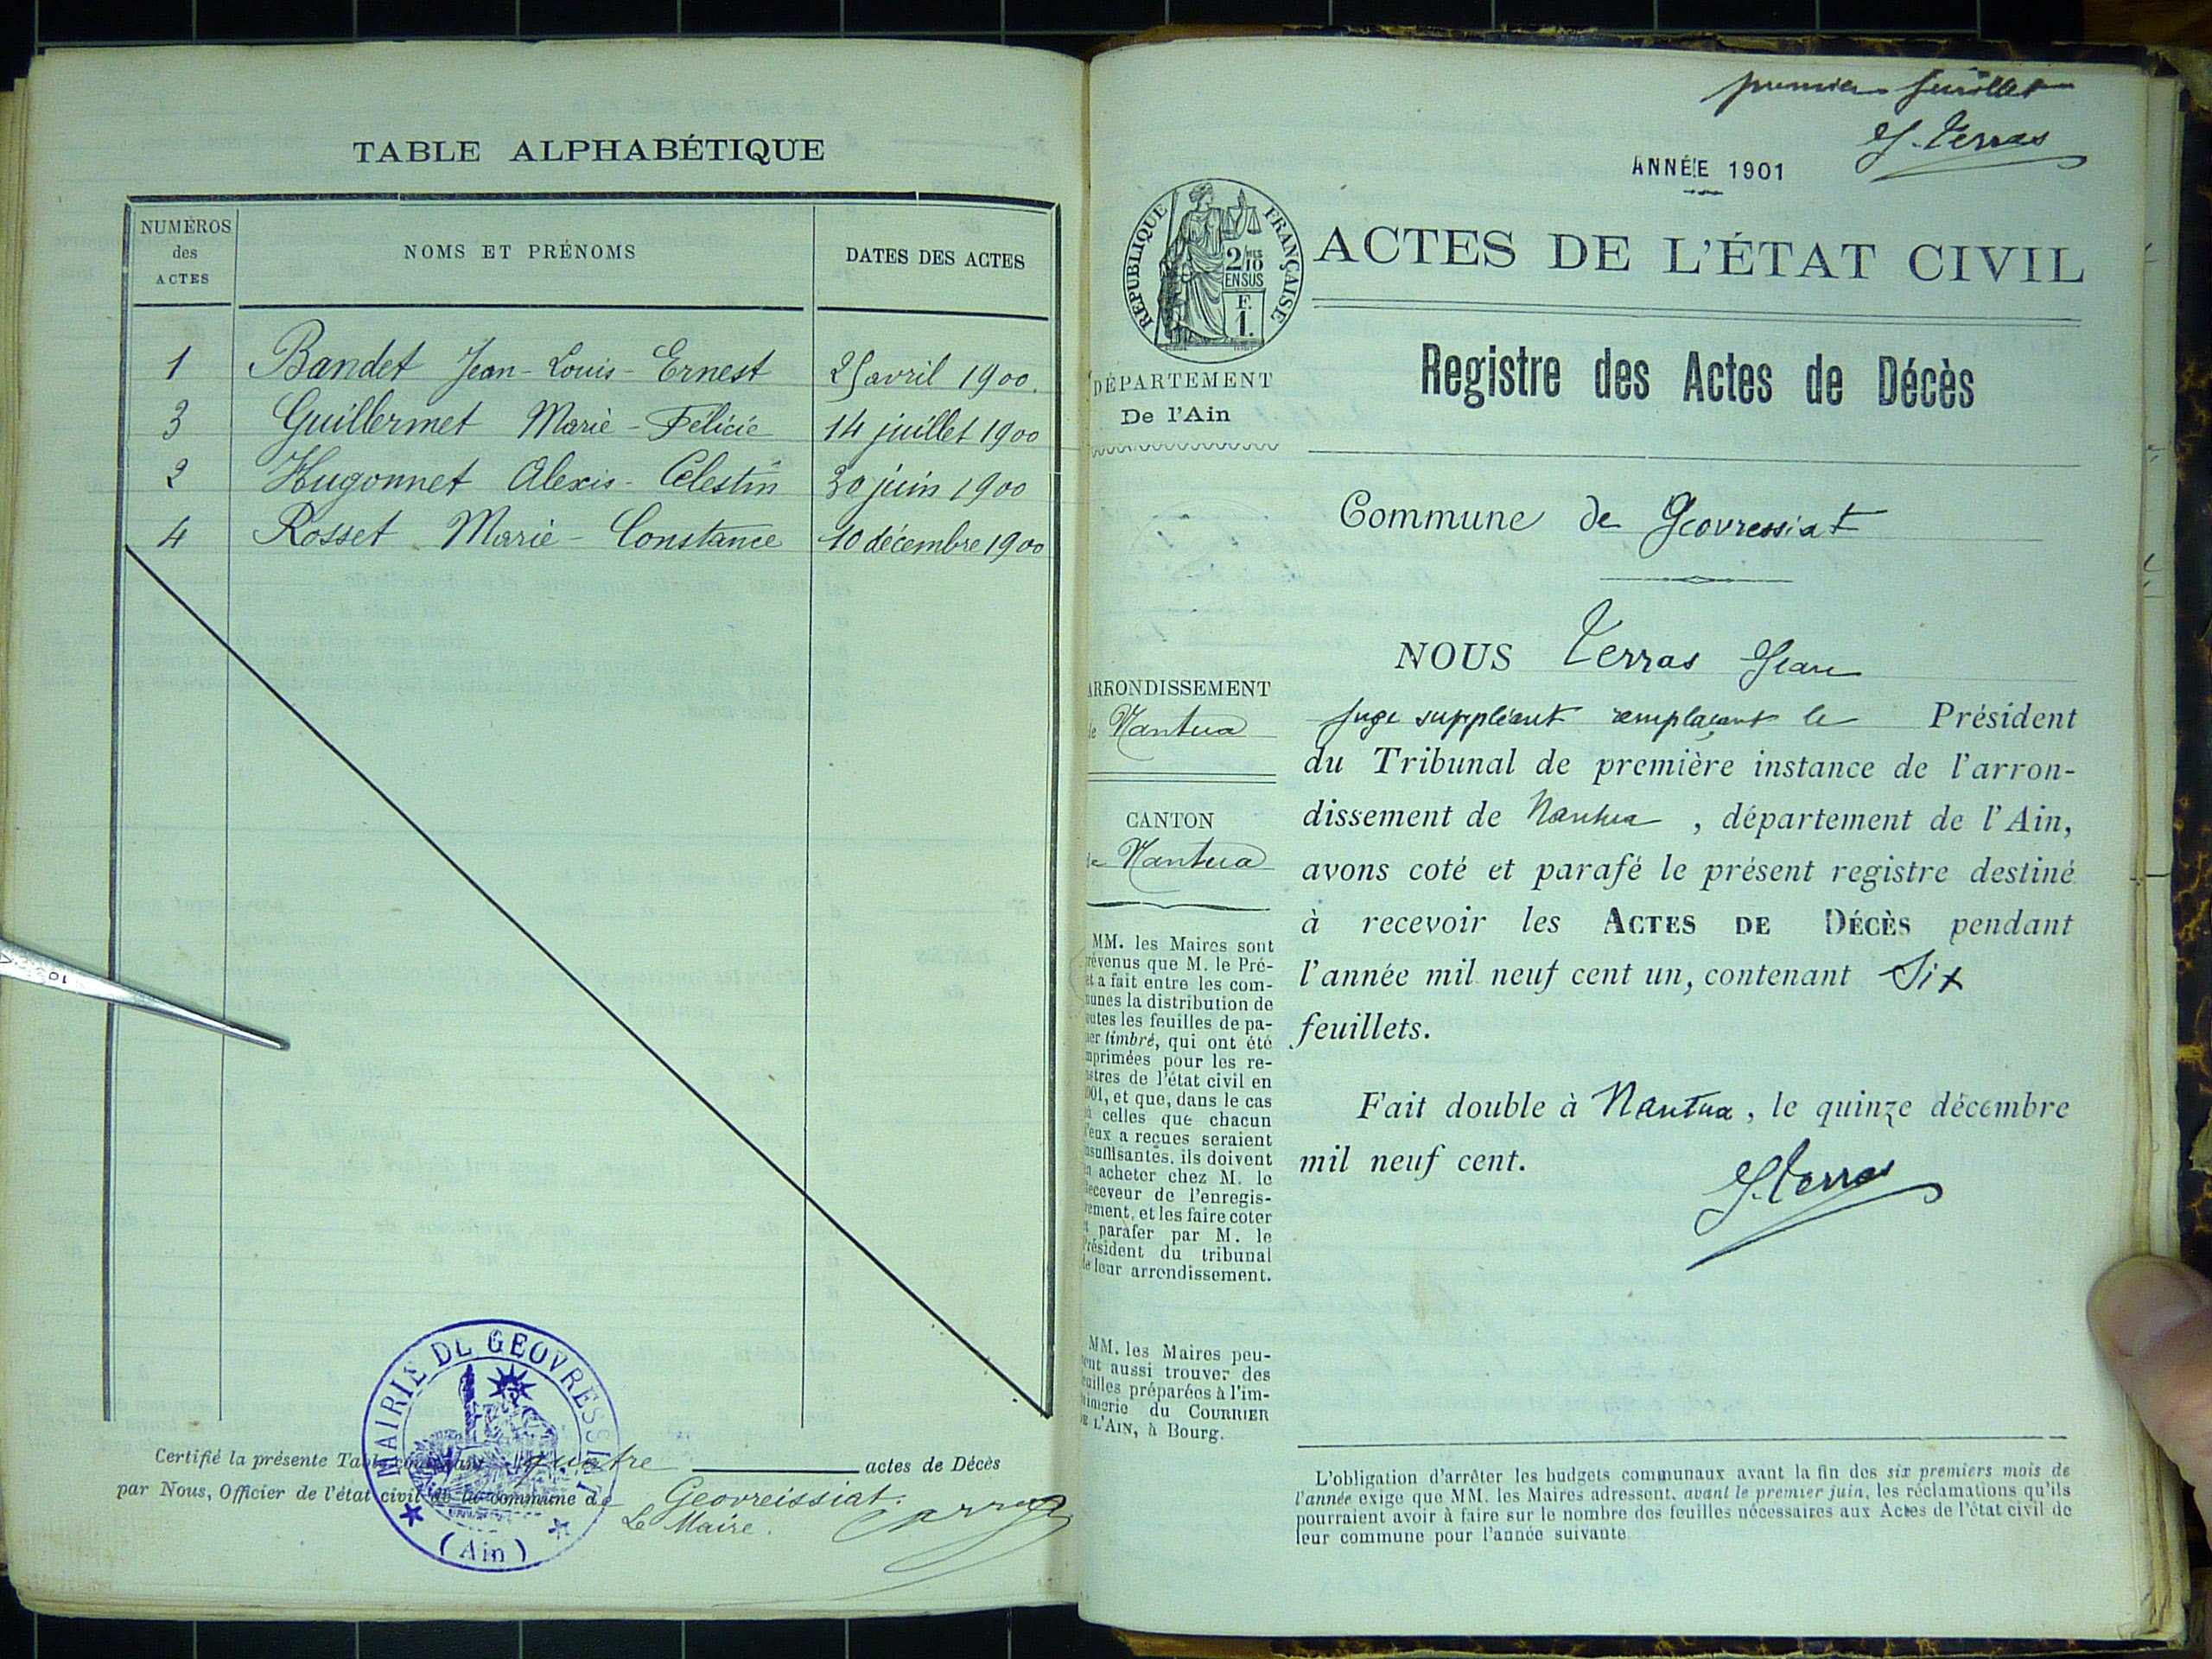 TABLE ALPHABÉTIQUE
NUMÉROS des ACTES
NOMS ET PRÉNOMS
DATES DES ACTES
1 Bandet Jean-Louis-Ernest 25 avril 1900.
3 Guillermet Marie-Félicie 14 juillet 1900
2 Hugonnet Alexis-Célestin 30 juin 1900
4 Rosset Marie-Constance 10 décembre 1900
MAIRIE DE GEOVRESSIAT
(Ain)
Certifié la présente Table contenant quatre actes de Décès
par Nous, Officier de l'état civil de la commune de Geovreissiat.
Le Maire.
premier feuillet
J. Terras
ANNÉE 1901
RÉPUBLIQUE FRANÇAISE
2/10 MES
EN SUS
F.
1.
ACTES DE L'ÉTAT CIVIL
DÉPARTEMENT
De l'Ain
Registre des Actes de Décès
Commune de Geovressiat
ARRONDISSEMENT
de Nantua
CANTON
de Nantua
MM. les Maires sont
prévenus que M. le Pré-
fet a fait entre les com-
munes la distribution de
toutes les feuilles de pa-
pier timbré, qui ont été
imprimées pour les re-
gistres de l'état civil en
1901, et que, dans le cas
où celles que chacun
d'eux a reçues seraient
insuffisantes, ils doivent
en acheter chez M. le
Receveur de l'enregis-
trement, et les faire coter
et parafer par M. le
Président du tribunal
de leur arrondissement.
MM. les Maires peu-
vent aussi trouver des
feuilles préparées à l'im-
primerie du COURRIER
DE L'AIN, à Bourg.
NOUS Terras Jean
juge suppléant remplaçant le Président
du Tribunal de première instance de l'arron-
dissement de Nantua, département de l'Ain,
avons coté et parafé le présent registre destiné
à recevoir les ACTES DE DÉCÈS pendant
l'année mil neuf cent un, contenant Six
feuillets.
Fait double à Nantua, le quinze décembre
mil neuf cent.
J. Terras
L'obligation d'arrêter les budgets communaux avant la fin des six premiers mois de
l'année exige que MM. les Maires adressent, avant le premier juin, les réclamations qu'ils
pourraient avoir à faire sur le nombre des feuilles nécessaires aux Actes de l'état civil de
leur commune pour l'année suivante.